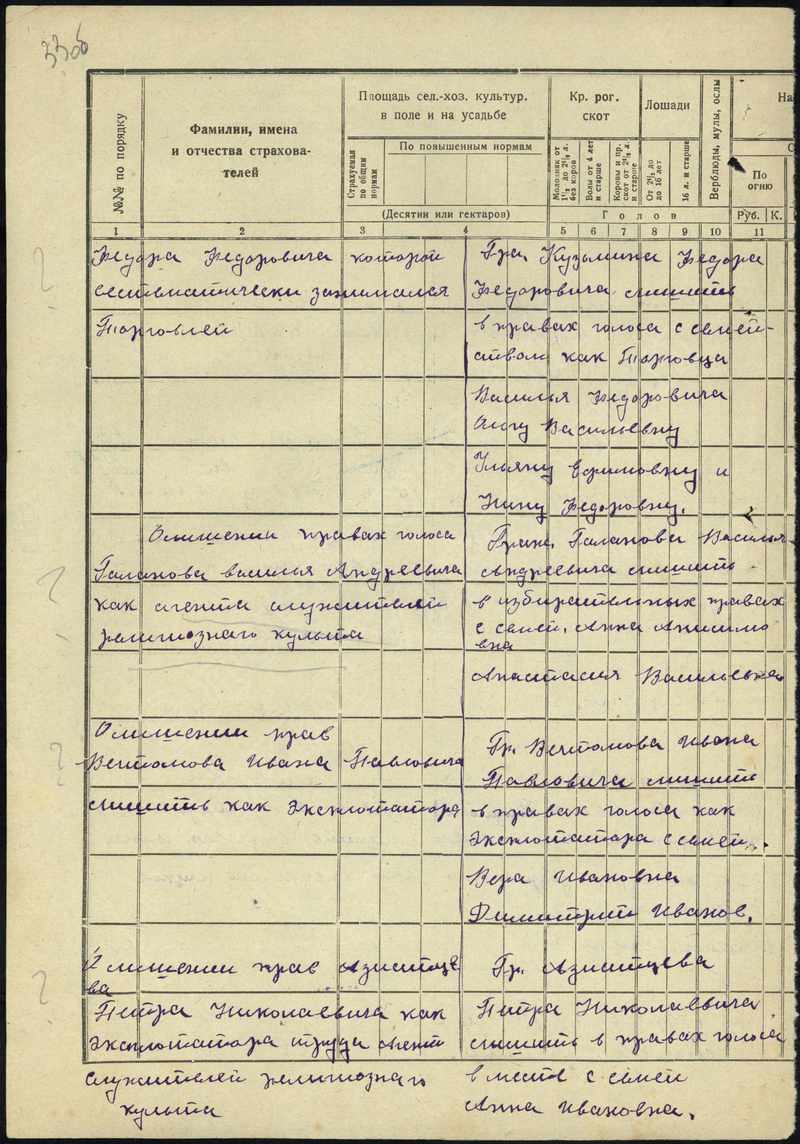 330б
№№ по порядку
Фамилии, имена
и отчества страхова-
телей
Площадь сел.-хоз. культур.
в поле и на усадьбе
Страхуемая
по общим
нормам
По повышенным нормам
(Десятин или гектаров)
Кр. рог.
скот
Молодняк от
1½ до 2½ л.
без коров
Волы от 4 лет
и старше
Коровы и пр.
скот от 2½ л.
и старше
Лошади
От 2½ до
16 лет
16 л. и старше
Голов
Верблюды, мулы, ослы
На
С
По
огню
Руб. К.
1 2 3 4 5 6 7 8 9 10 11
Федора Федоровича которой
систематически занимался
Торговлей
Гра. Кузьмина Федора
Федоровича лишить
в правах голоса с семей-
ством как Торговца
Василья Федоровича
Анну Васильевну
Ульяну Ефимовну и
Нину Федоровну.
О лишении правах голоса
Галанова василья Андреевича
как агента служителей
религиозного культа
Граж. Галанова Василья
Андреевича лишить
в избирательных правах
с семей. Анна Анисимо
вна
Анастасия Васильевна
О лишении прав
Вечтомова Ивана Павловича
лишить как эксплотатора
Гр. Вечтомова Ивана
Павловича лишить
в правах голоса как
эксплотатора с семей.
Вера Ивановна
Димитрий Иванов.
О лишении прав Азиатце
ва
Петра Николаевича как
эксплотатора труда агент
служителей религиозного
культа
Гр. Азиатцева
Петра Николаевича
лишить в правах голоса
вместе с семей
Анна Ивановна.